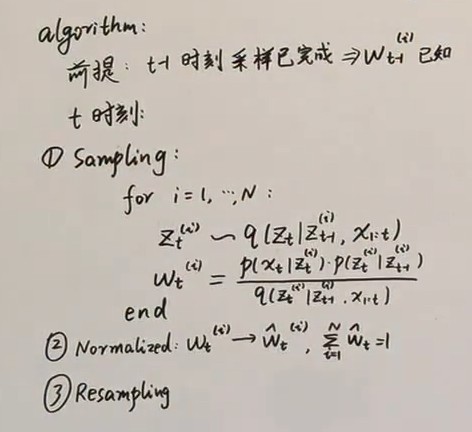 algorithm:
前提: t-1 时刻采样已完成 ⇒ W_{t-1}^{(i)} 已知
t 时刻:
① Sampling:
for i=1, ⋯, N :
Z_t^{(i)} ∼ q(Z_t|Z_{t-1}^{(i)}, X_{1:t})
W_t^{(i)} = \frac{p(X_t|Z_t^{(i)})·p(Z_t^{(i)}|Z_{t-1}^{(i)})}{q(Z_t^{(i)}|Z_{t-1}^{(i)}, X_{1:t})}
end
② Normalized: W_t^{(i)} → \hat{W}_t^{(i)}, \sum_{t=1}^{N} \hat{W}_t = 1
③ Resampling